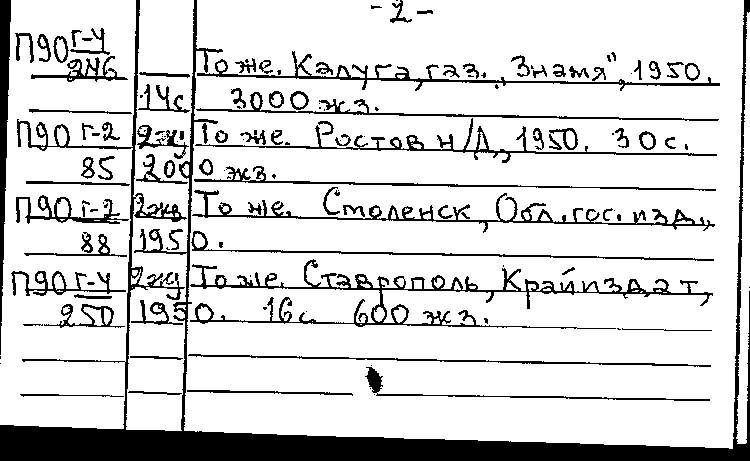 - 2 -
П90 Г-4
246 То же. Калуга, газ. „Знамя", 1950.
14с 3000 экз.
П90 Г-2 2эку То же. Ростов н/Д., 1950. 30с.
85 2000 экз.
П90 Г-2 2экз То же. Смоленск, Обл. гос. изд.,
88 1950.
П90 Г-4 2эку То же. Ставрополь, Крайиздат,
250 1950. 16с. 600 экз.